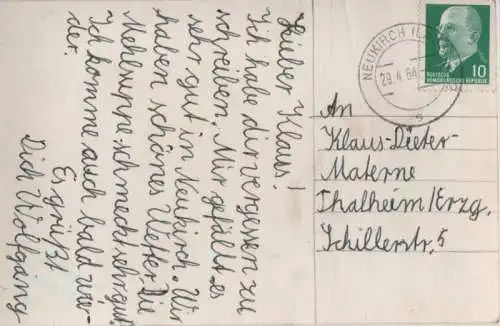 Lieber Klaus!
Ich habe dir vergessen zu
schreiben. Mir gefällt es
sehr gut in Neukirch. Wir
haben schönes Wetter. Die
Mehlsuppe schmeckt sehr gut.
Ich komme auch bald wie-
der.
Es grüßt
Dich Wolfgang
NEUKIRCH
29.4.64
10
DEUTSCHE
DEMOKRATISCHE REPUBLIK
An
Klaus-Dieter-
Materne
Thalheim/Erzg.
Schillerstr. 5